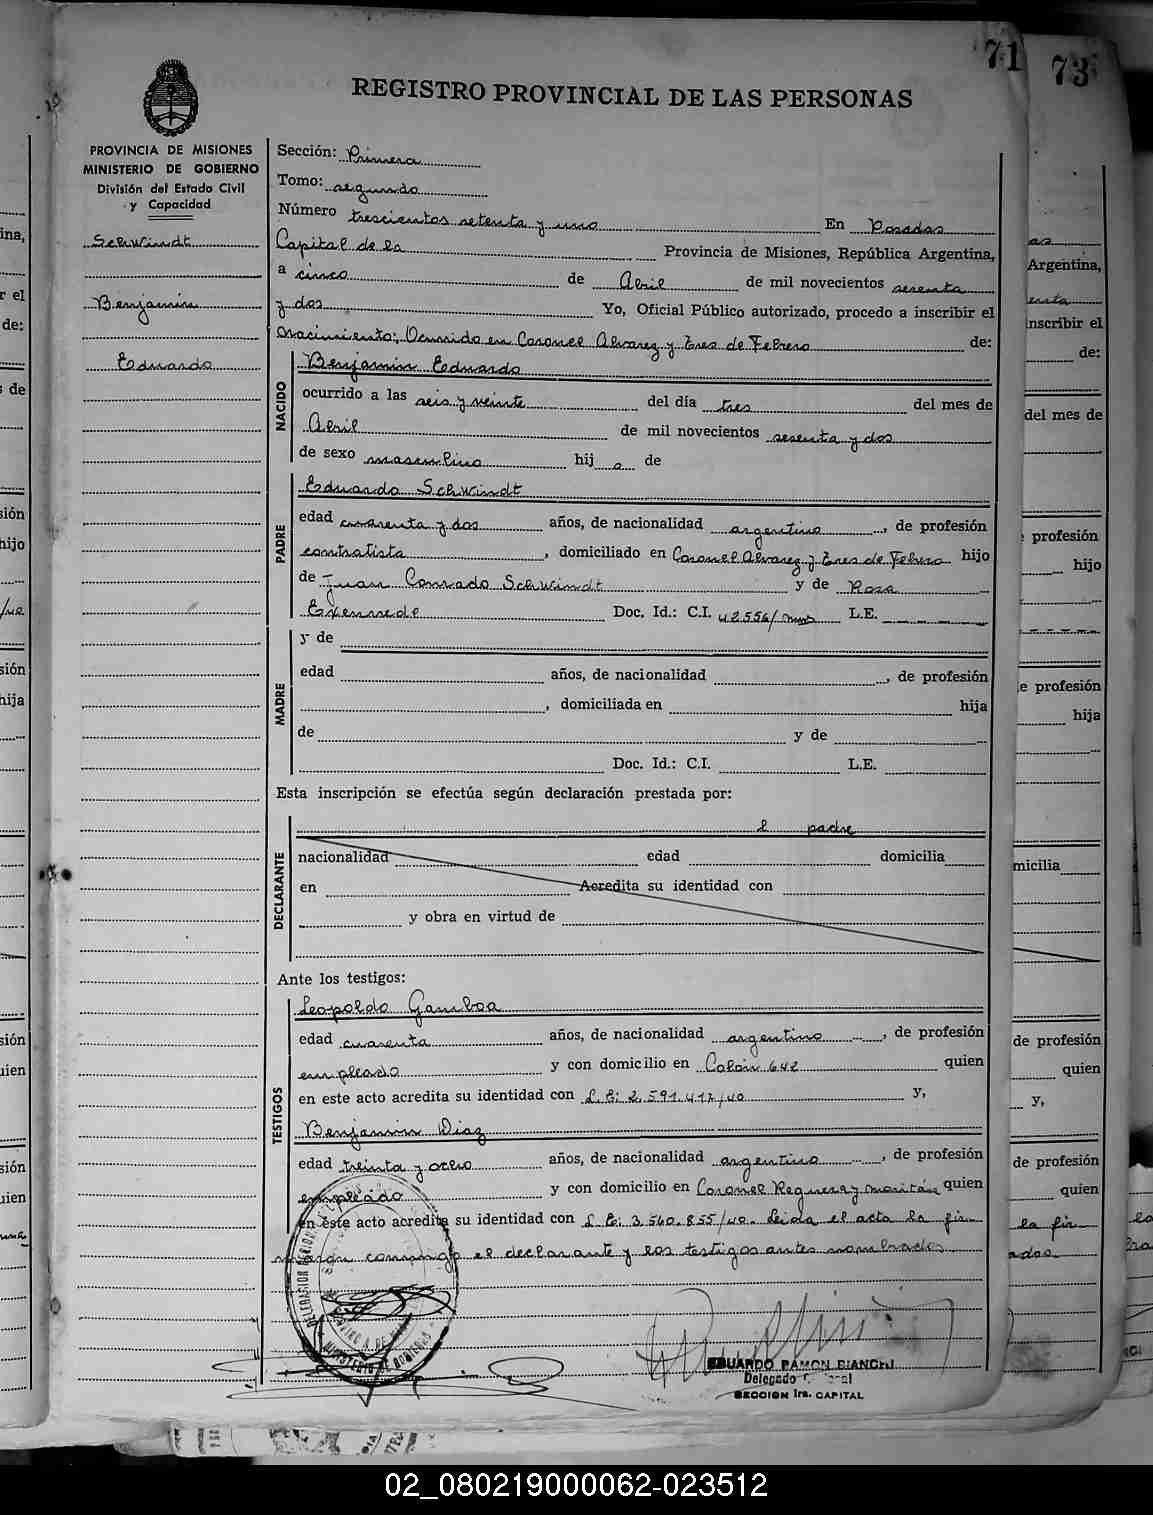 71
73
REGISTRO PROVINCIAL DE LAS PERSONAS
PROVINCIA DE MISIONES
MINISTERIO DE GOBIERNO
División del Estado Civil
y Capacidad
Schwindt
Benjamin
Eduardo
Sección: Primera
Tomo: segundo
Número trescientos setenta y uno En Posadas
Capital de la Provincia de Misiones, República Argentina,
a cinco de Abril de mil novecientos sesenta
y dos Yo, Oficial Público autorizado, procedo a inscribir el
nacimiento; Ocurrido en Coronel Alvarez y Tres de Febrero de:
NACIDO
Benjamin Eduardo
ocurrido a las seis y veinte del día tres del mes de
Abril de mil novecientos sesenta y dos
de sexo masculino hij o de
PADRE
Eduardo Schwindt
edad cuarenta y dos años, de nacionalidad argentino, de profesión
contratista, domiciliado en Coronel Alvarez y Tres de Febrero hijo
de Juan Conrado Schwindt y de Rosa
Doc. Id.: C.I. 42556/ L.E.
MADRE
y de
edad años, de nacionalidad , de profesión
, domiciliada en hija
de y de
Doc. Id.: C.I. L.E.
Esta inscripción se efectúa según declaración prestada por:
DECLARANTE
el padre
nacionalidad edad domicilia
en Acredita su identidad con
y obra en virtud de
Ante los testigos:
TESTIGOS
Leopoldo Gamboa
edad cuarenta años, de nacionalidad argentino, de profesión
empleado y con domicilio en Colón 642 quien
en este acto acredita su identidad con L.E: 2.591.417/40 y,
Benjamin Diaz
edad treinta y ocho años, de nacionalidad argentino, de profesión
empleado y con domicilio en Coronel Reguera y quien
en este acto acredita su identidad con L.E: 3.540.855/40. Leida el acta la fir-
maron conmigo el declarante y los testigos antes nombrados
MINISTERIO DE GOBIERNO
EDUARDO RAMON BIANCHI
Delegado
SECCION 1ra. CAPITAL
Argentina,
inscribir el
de:
del mes de
profesión
hijo
e profesión
hija
micilia
de profesión
quien
y,
de profesión
quien
la fir-
02_080219000062-023512